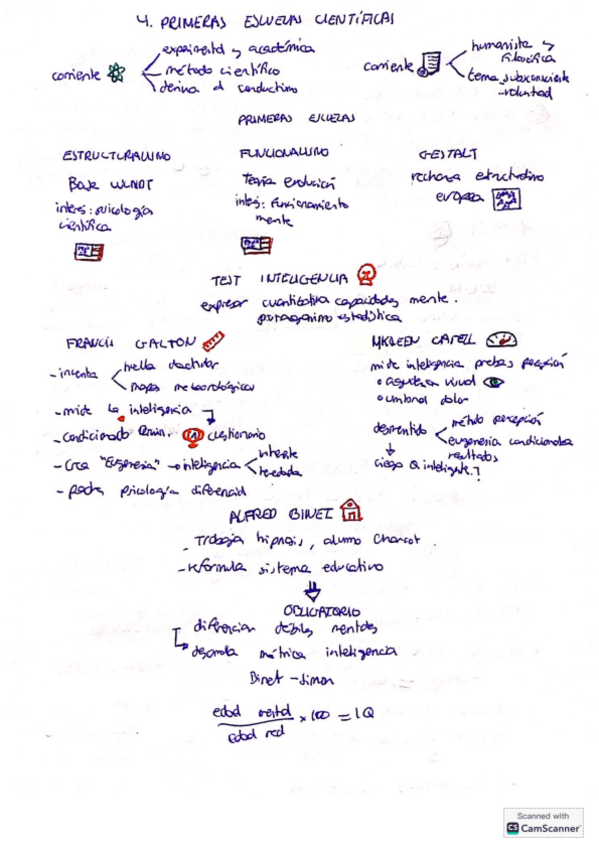 4. PRIMERAS ESCUELAS CIENTÍFICAS
corriente
experimental y académica
método científico
deriva al conductimo
corriente
humanista y
filosófica
tema subsconsciente
-voluntad
PRIMERAS ESCUELAS
ESTRUCTURALISMO
Base WUNDT
interés: psicología
científica
FUNCIONALISMO
Teoría evolución
interés: funcionamiento
mente
GESTALT
rechaza estructuralismo
europea
TEST INTELIGENCIA
expresar cuantitativa capacidades mente.
estadística
FRANCIS GALTON
- inventa
huella dactilar
mapas meteorológicos
- mide la inteligencia
- condicionado Darwin.
cuestionario
- Crea "Eugenesia" → inteligencia
innata
heredada
- padre psicología diferencial
CATELL
mide inteligencia prebas percepción
agudeza visual
umbral dolor
desmentido
método percepción
eugenesia condicionaba
resultados
ciego Q inteligente.?
ALFRED BINET
- Trabaja hipnosis, alumno Charcot.
- reformula sistema educativo
OBLIGATORIO
diferencian débiles mentales
desarrolla métrica inteligencia
Binet - Simon
edad mental
edad real
x 100 = IQ
Scanned with
CS CamScanner